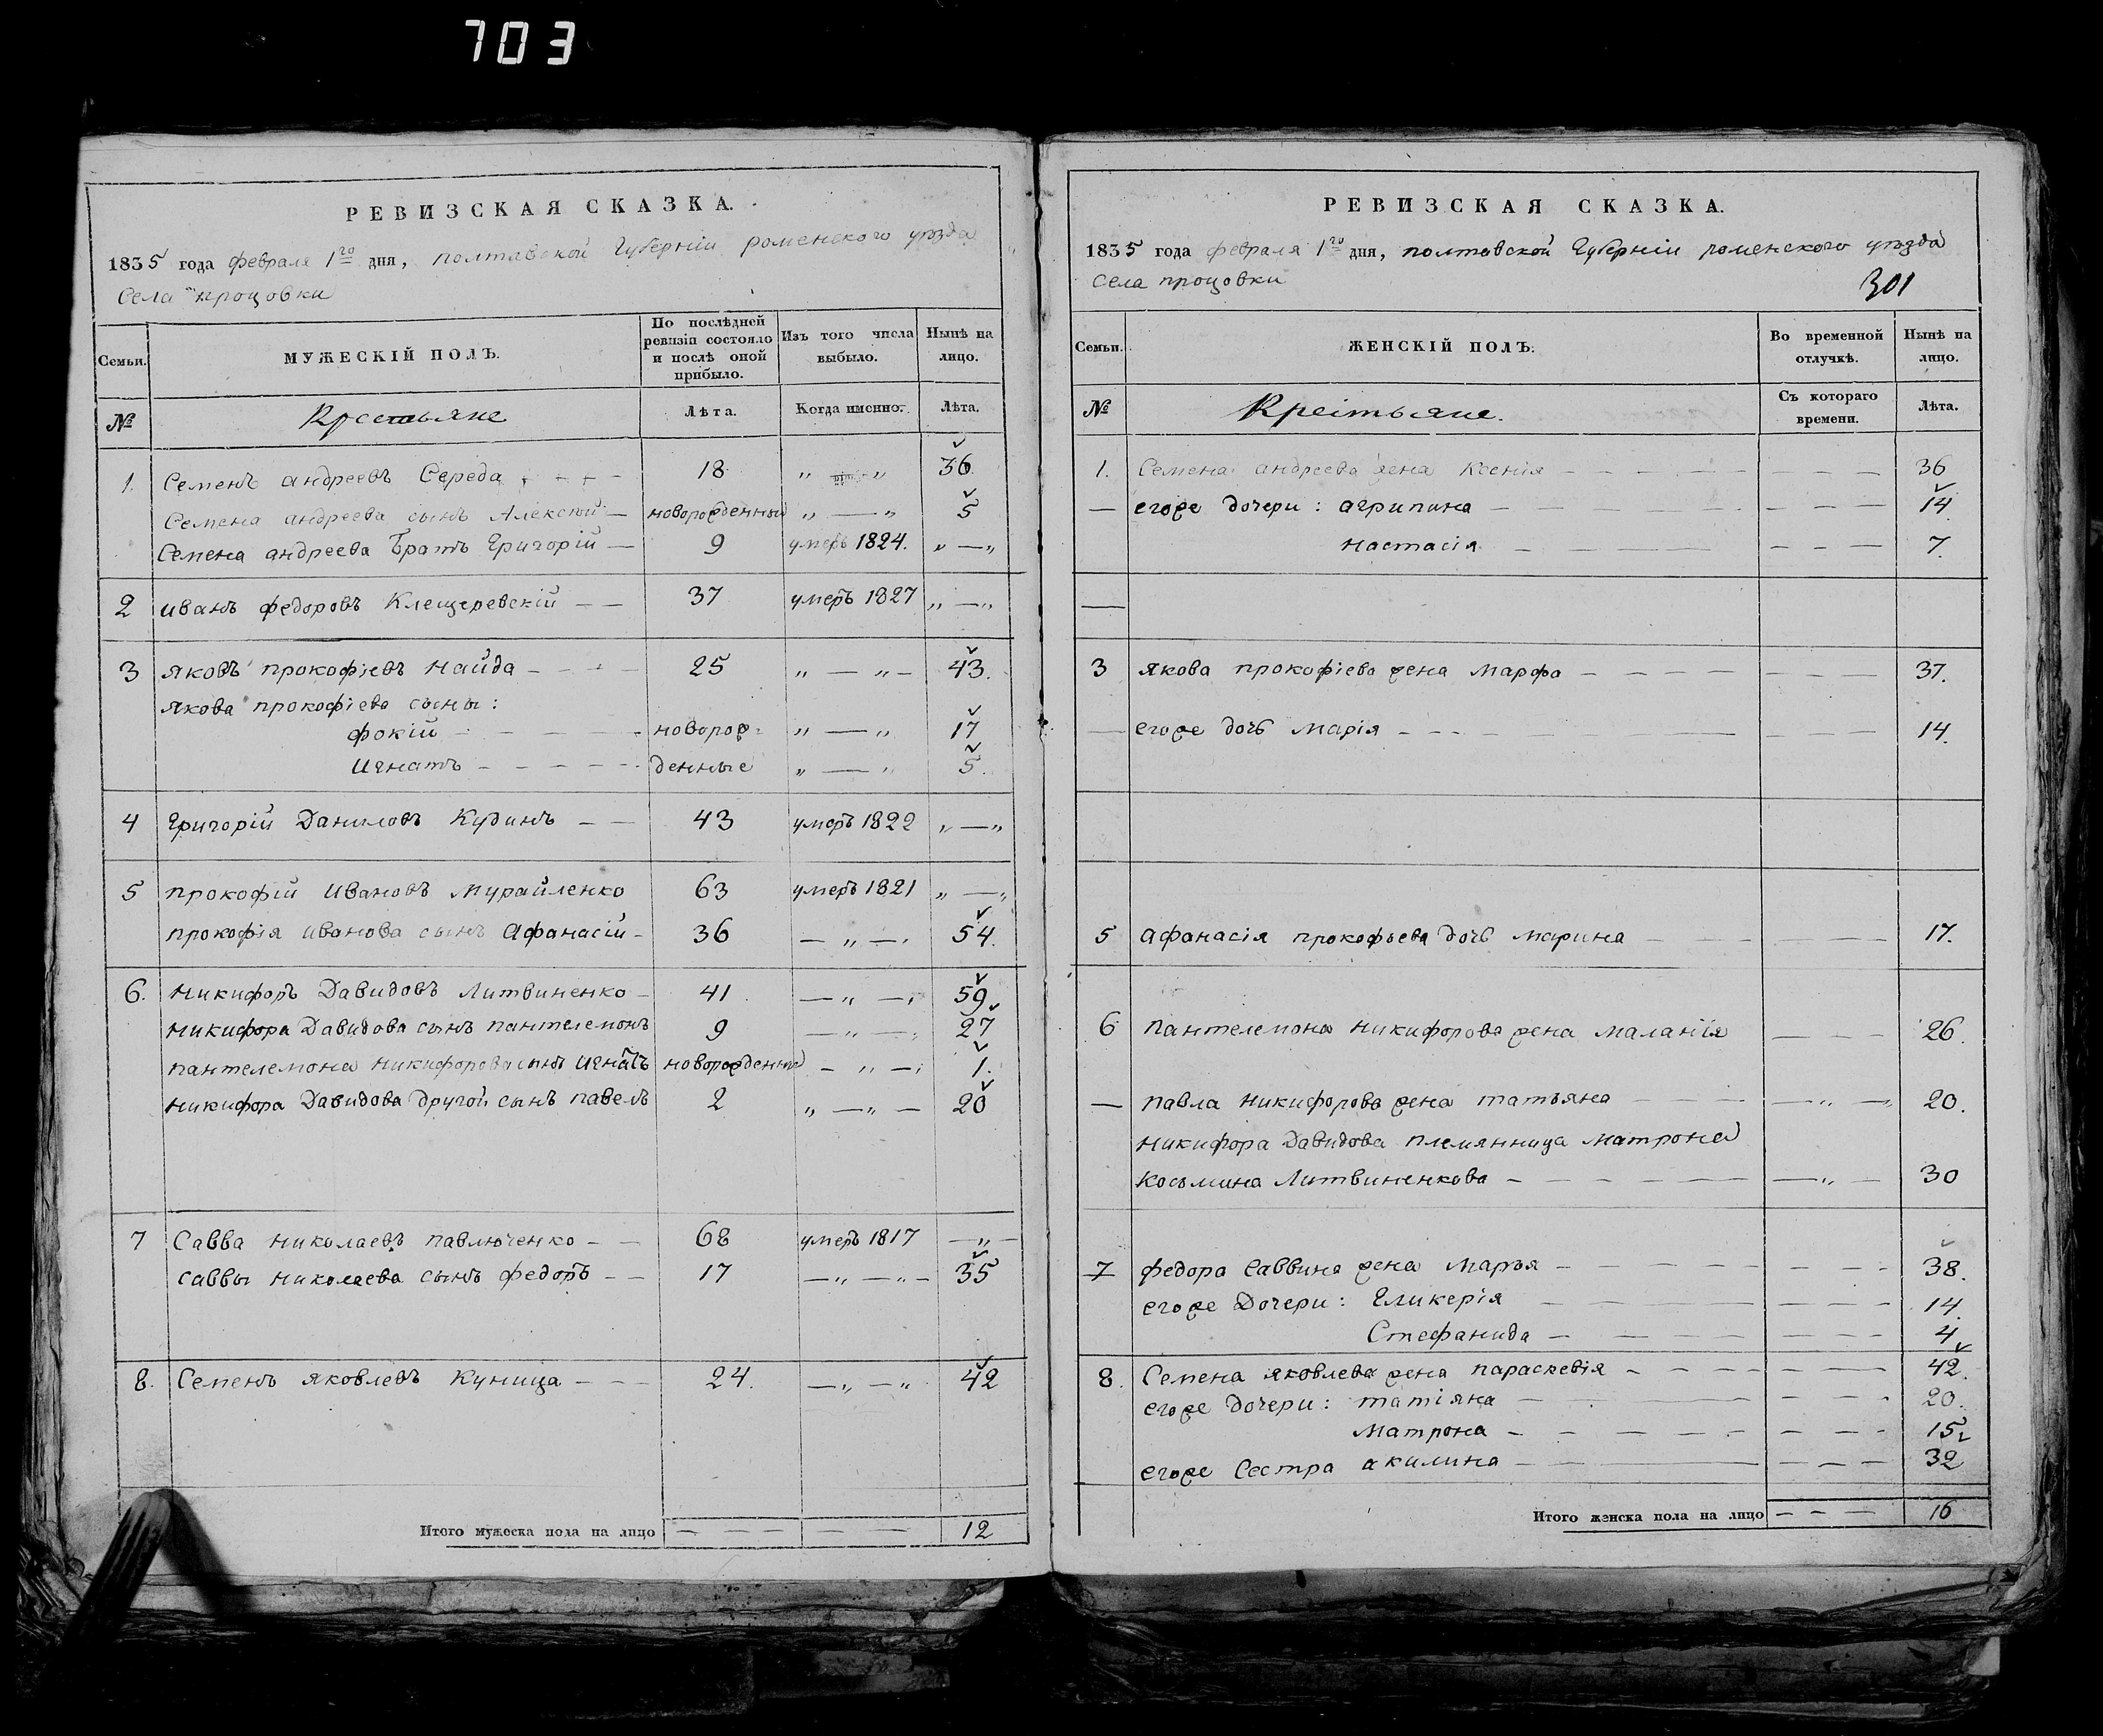 703
РЕВИЗСКАЯ СКАЗКА.
1835 года февраля 1го дня, полтавской Губерніи роменского уѣзда
Села процовки
Семьи.
МУЖЕСКІЙ ПОЛЪ.
По послѣдней ревизіи состояло и послѣ оной прибыло.
Изъ того числа выбыло.
Нынѣ на лицо.
№ Крестьяне Лѣта. Когда именно. Лѣта.
1. Семенъ андреевъ Середа 18 „ — „ 36
Семена андреева сынъ Алексѣй — новорожденный „ — „ 5
Семена андреева Братъ Григорій — 9 умеръ 1824. „ — „
2 иванъ федоровъ Клещеревскій — — 37 умеръ 1827 „ — „
3 яковъ прокофіевъ Найда — — — 25 „ — „ — 43.
якова прокофіева сыны:
фокій — — — — новорож- „ — „ 17
Игнатъ — — — — денные „ — „ 5.
4 Григорій Даниловъ Кудинъ — — 43 умеръ 1822 „ — „
5 прокофій Ивановъ Мурайленко 63 умеръ 1821 „ — „
прокофія иванова сынъ Афанасій — 36 — „ — 54.
6. Никифоръ Давидовъ Литвиненко — 41 — „ — 59
Никифора Давидова сынъ пантелемонъ 9 — „ — 27
пантелемона никифорова сынъ Игнатъ новорожденный — „ — 1.
Никифора Давидова другой сынъ павелъ 2 „ — „ — 20
7 Савва николаевъ павлюченко — — 68 умеръ 1817 — „ —
саввы николаева сынъ федоръ — — 17 — „ — „ — 35
8. Семенъ яковлевъ Куница — — — 24. — „ — „ 42
Итого мужеска пола на лицо — — — — — — 12
РЕВИЗСКАЯ СКАЗКА.
1835 года февраля 1го дня, полтавской Губерніи роменского уѣзда
села процовки
301
Семьи.
ЖЕНСКІЙ ПОЛЪ.
Во временной отлучкѣ.
Нынѣ на лицо.
№ Крестьяне. Съ котораго времени. Лѣта.
1. Семена андреева жена Ксенія — — — — — — 36
— егоже дочери: агрипина — — — — — — 14
настасія — — — — — — 7.
—
3 якова прокофіева жена Марфа — — — — — — 37.
— егоже дочь Марія — — — — — — 14.
5 афанасія прокофьева дочь марина — — — — 17.
6 пантелемона никифорова жена маланія — — — 26.
— павла никифорова жена татьяна — — — — „ — 20.
никифора Давидова племянница матрона
косьмина Литвиненкова — — — — — „ — 30
7 федора саввина жена Марья — — — — — — 38.
егоже Дочери: Гликерія — — — — — — 14.
Стефанида — — — — — — 4
8. Семена яковлева жена параскевія — — — — — 42.
егоже дочери: татіяна — — — — — 20.
Матрона — — — — — — 15
егоже Сестра акилина — — — — — — 32
Итого женска пола на лицо — — — 16